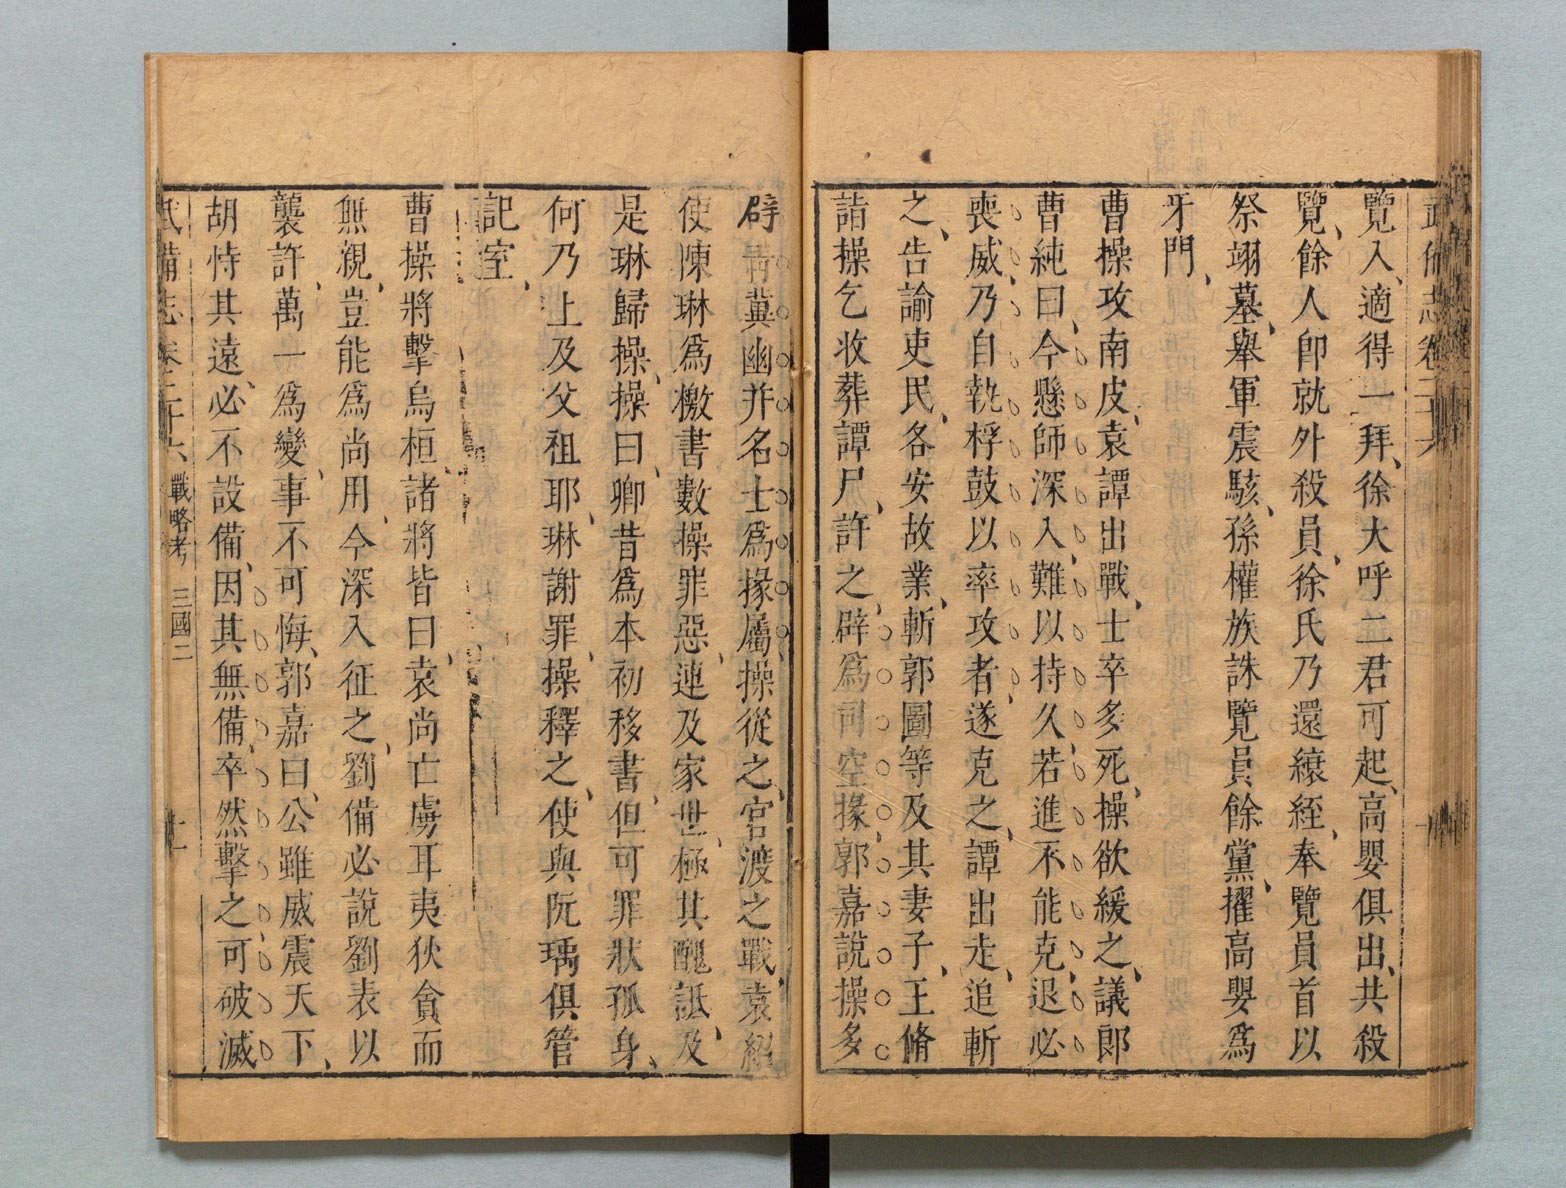 武備志卷二十六
覽入、適得一拜、徐大呼二君可起、高嬰俱出、共殺
覽、餘人卽就外殺員、徐氏乃還縗絰、奉覽員首以
祭翊墓、舉軍震駭、孫權族誅覽員餘黨、擢高嬰爲
牙門、
曹操攻南皮、袁譚出戰、士卒多死、操欲緩之、議郎
曹純曰、今懸師深入、難以持久、若進不能克、退必
喪威、乃自執桴鼓以率攻者、遂克之、譚出走、追斬
之、告諭吏民、各安故業、斬郭圖等及其妻子、王脩
詣操乞收葬譚尸、許之、辟爲司空掾、郭嘉說操多
辟靑冀幽幷名士爲掾屬、操從之、官渡之戰、袁紹
使陳琳爲檄書、數操罪惡、連及家世、極其醜詆、及
是琳歸操、操曰、卿昔爲本初移書、但可罪狀孤身、
何乃上及父祖耶、琳謝罪、操釋之、使與阮瑀俱管
記室、
曹操將擊烏桓、諸將皆曰、袁尚亡虜耳、夷狄貪而
無親、豈能爲尚用、今深入征之、劉備必說劉表以
襲許、萬一爲變、事不可悔、郭嘉曰、公雖威震天下、
胡恃其遠、必不設備、因其無備、卒然擊之、可破滅
武備志卷二十六 戰略考 三國二 十一